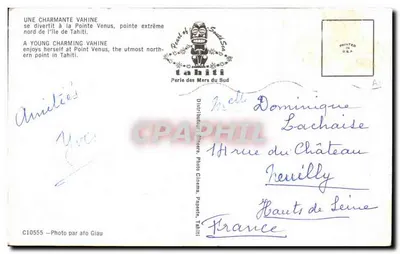 UNE CHARMANTE VAHINE
se divertit à la Pointe Venus, pointe extrême
nord de l'île de Tahiti.
A YOUNG CHARMING VAHINE
enjoys herself at Point Venus, the utmost north-
ern point in Tahiti.
Pearl of South Sea
tahiti
Perle des Mers du Sud
PRINTED
IN
Amitiés
Yves
Melle Dominique
Lachaise
14 rue du Château
Neuilly
Hauts de Seine
France
Cartorum
Photo Cinema, Papeete, Tahiti
C10555 - Photo par afo Giau